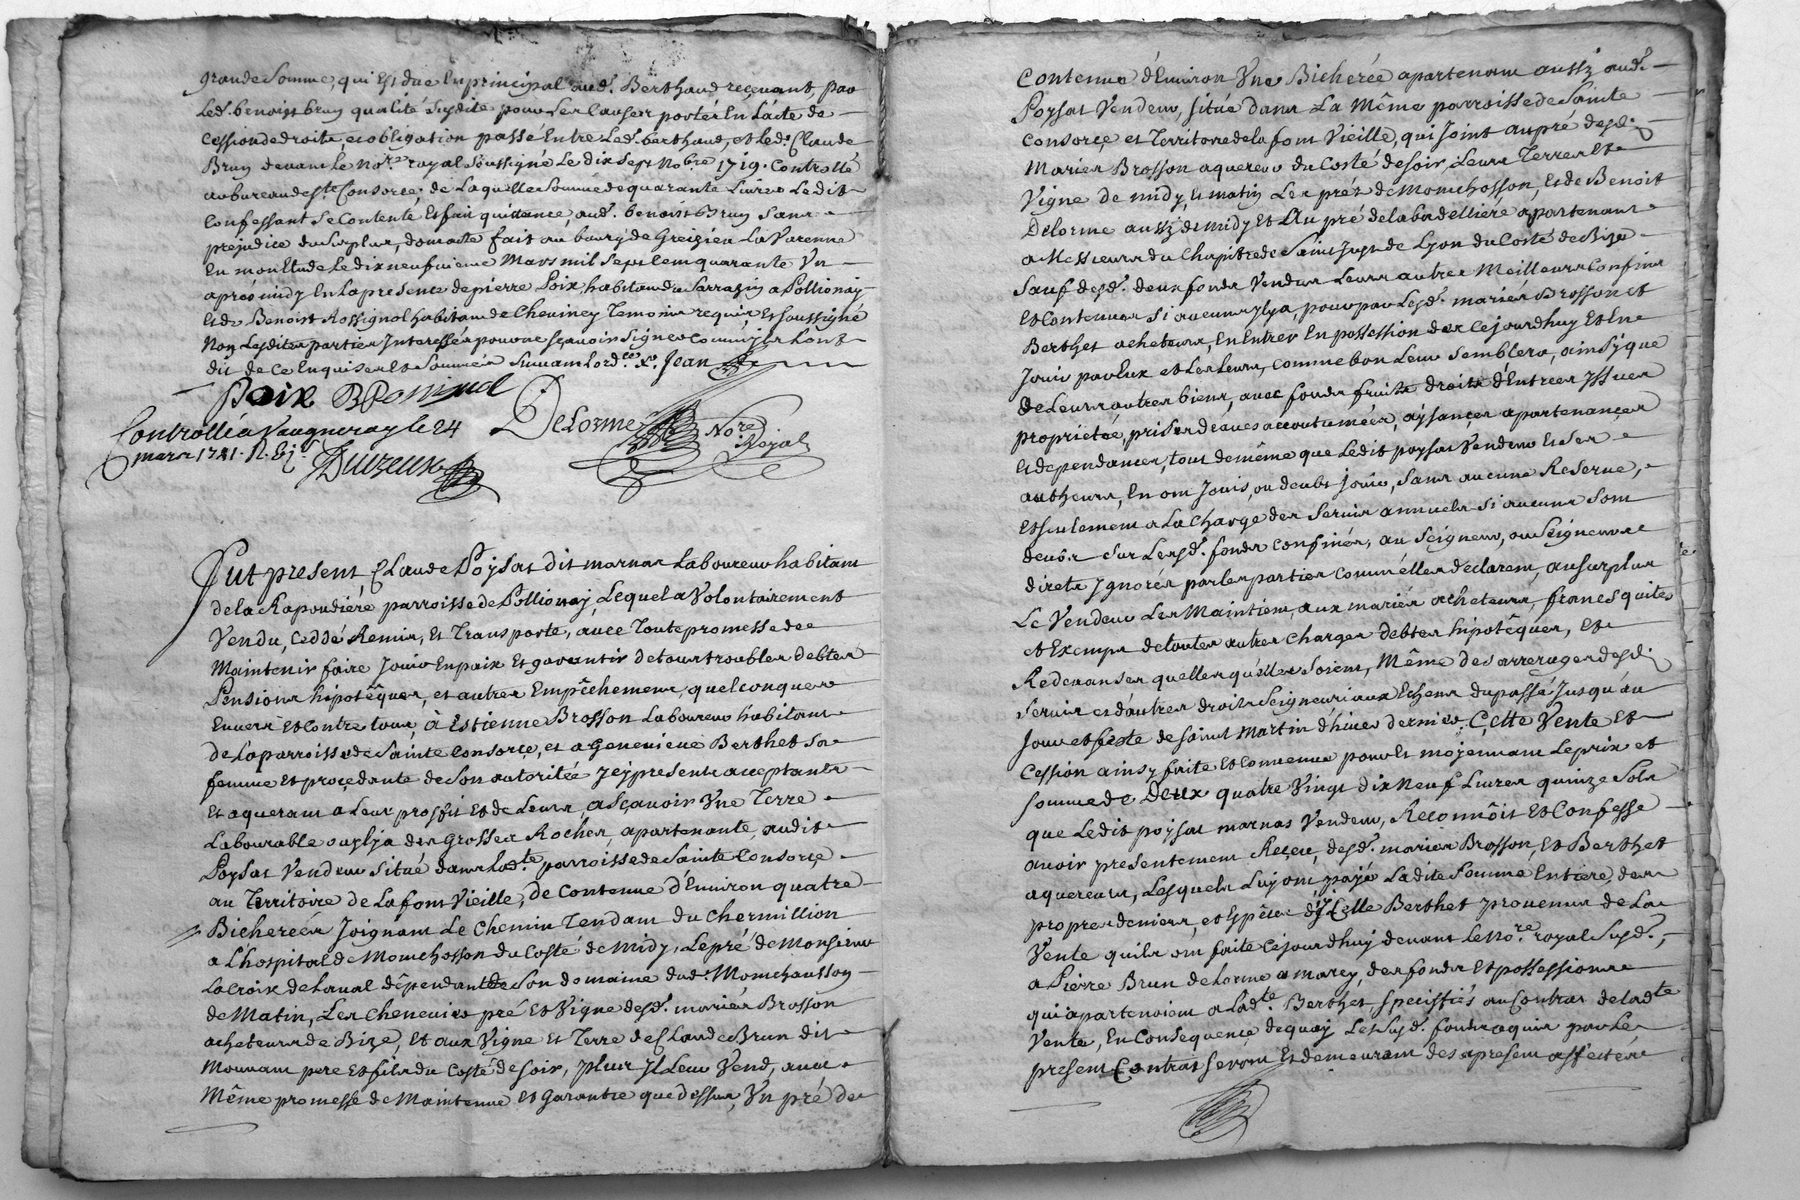 grande Somme, qui Est due En principal aud. Berthaud reçevant par
Led. benoist brun qualité Susdite pour Les Causes portés En L'acte de
Cession de droits, et obligation passé Entre Led. berthaud, et Led. Claude
Brun devant Le No.re royal Soussigné Le dix Sept No.bre 1719. Controllé
au bureau de S.te Consorce; de Laquelle Somme de quarante Livres Ledit
Confessant Se Contente Et fait quittance, aud. benoist Brun Sans
prejudice du Surplus, dont acte fait au bourg de Greizieu La Varenne
En mon Etude Le dix neufvieme Mars mil Sept Cent quarante Un
après midy En La presence de pierre Poix habitant a Sarrazin a Pollionay
Et de Benoist Rossignol habitant de Cheviney Temoins requis Et Soussigné
Non Lesdites parties Interessés pour ne Sçavoir Signer Comm'ils L'ont
dit de Ce Enquises Et Sommées Suivant L'ord.ce x. Jean
Poix B Rossignol
Controllé à Vaugneray le 24 DeLorme No.re
mars 1741. R. Royal
Fut present Claude Poysat dit marnas Laboureur habitant
de la Rapoudière parroisse de Pollionay Lequel a Volontairement
Vendu, Ceddé Remis, Et Transporté, avec Toute promesse de
Maintenir faire Jouir En paix Et garentir de tous troubles debtes
Pensions hipotêques, et autres Empêchemens, quelconques
Envers Et Contre tous, à Estienne Brosson Laboureur habitant
de La parroisse de Sainte Consorce, et a Genevieve Berthet Sa
femme Et procedante de Son autorité Icy presents acceptants
Et aquerans a Leur proffit Et de Leurs, asçavoir Une Terre
Labourable ou il y a des Grosses Rocher, apartenante, audit
Poysat Vendeur Situé dans Lad.te parroisse de Sainte Consorce
au Territoire de La font Vieille, de Contenue d'Environ quatre
Bicherées Joignant Le Chemin Tendant du Chermillion
a L'hospital de Montchosson du Costé de Midy, Le pré de Monsieur
La Croix de Laval dépendant de Son domaine dud. Montchausson
de Matin, Les Cheneviers pré Et Vigne desd. mariés Brosson
acheteurs de Bize, Et aux Vigne Et Terre de Claude Brun dit
Mouvant pere Et fils du Costé de Soir, plus Il Leur Vend, avec
Même promesse de Maintenue Et Garantie que dessus, Un pré de
Contenue d'Environ Une Bicherée apartenant aussy aud.
Poysat Vendeur, Situé dans La Même parroisse de Sainte
Consorce et Territoire de La font Vieille, qui Joint au pré desd.
Mariés Brosson aquereurs du Costé de Soir, Leurs Terres Et
Vigne de midy, Et matin Les prés de Montchosson, Et de Benoit
Delorme aussy de Midy Et Au pré de La badellière apartenant
a Messieurs du Chapitre de Saint Just de Lyon du Costé de Bize
Sauf desd. deux fonds Vendus Leurs autres Meilleurs Confins
Et Contenues Si aucuns y a, pour par Lesd. mariés Brosson Et
Berthet acheteurs, En Entrer En possession dez Cejourdhuy Et En
Jouir par Eux et Les Leurs, Comme bon Leur Semblera, ainsy que
de Leurs autres biens, avec fonds fruits droits d'Entrées Issues
proprietée, prises d'eaues accoutumées, aysances apartenances
Et dependances, tout de même que Ledit poysat Vendeur Et Ses
autheurs, En ont Jouis, ou deub Jouir, Sans aucune Reserve,
Et Seulement a La Charge des Servis annuels Si aucuns Sont
deubs Sur Lesd. fonds Confinés, au Seigneur, ou Seigneurs
directs Ignorés par les parties Comm'elles déclarent, au Surplus
Le Vendeur Les Maintient, aux mariés acheteurs, francs quites
Et Exempt de toutes autres Charges debtes hipotêques, Et
Redevances quelles qu'elles Soient, Même des arrerages desd.
Servis et d'autres droits Seigneuriaux Echeus du passé Jusqu'au
Jour et feste de Saint Martin d'hiver dernier. Cette Vente Et
Cession ainsy faite Et Convenue pour Et moyennant Le prix et
Somme de Deux quatre Vingt dix Neuf Livres quinze Sols
que Ledit poysat marnas Vendeur, Reconnôit Et Confesse
avoir presentement Reçeu, desd. mariés Brosson, Et Berthet
aquereurs, Lesquels Luy ont payé Ladite Somme Entiere, des
propres deniers, et Espêce d'Icelle Berthet provenus de La
Vente qu'ils ont faite Cejourdhuy devant Le No.re royal Susd.,
a Pierre Brun de Lorme a marcy, des fonds Et possessions
qui apartenoient a Lad.te Berthet, Speciffiés au Contrat de Lad.te
Vente, En Consequence de quoy Les Susd. fonds aquis par Le
present Contrat Seront Et demeurant des apresent affectés